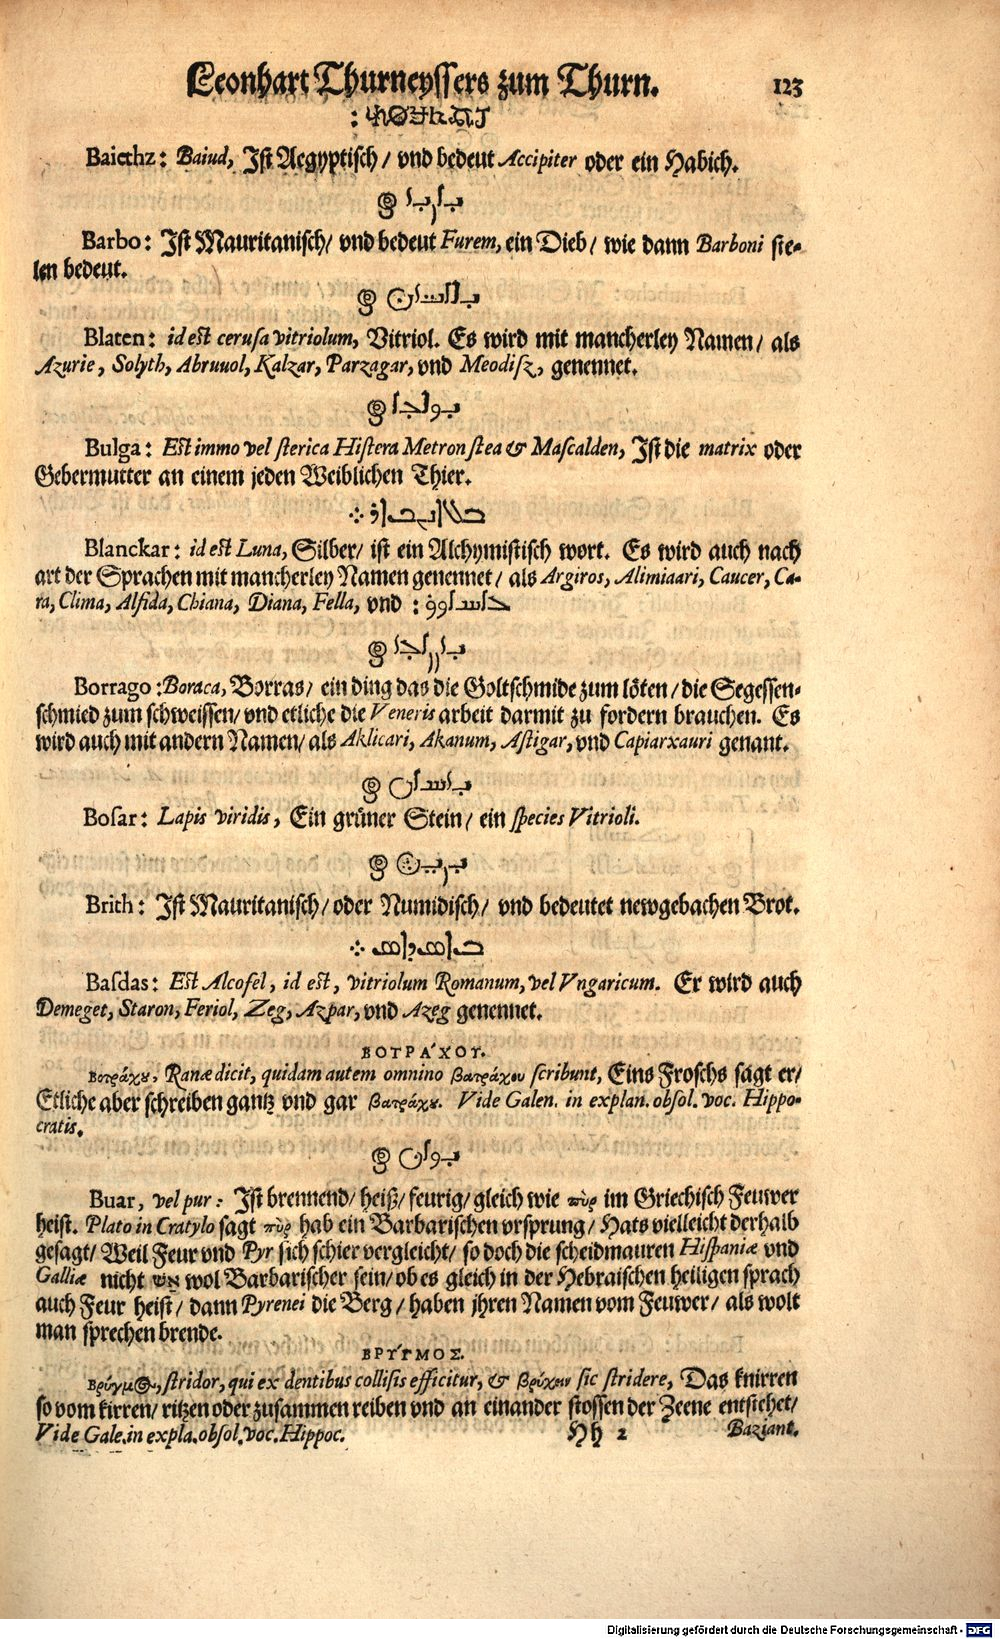 Leonhart Thurneyssers zum Thurn. 123
Baiethz: Baiud, Ist Aegyptisch / vnd bedeut Accipiter oder ein Habich.
Barbo: Ist Mauritanisch / vnd bedeut Furem, ein Dieb / wie dann Barboni ste-
len bedeut.
Blaten: id est cerusa vitriolum, Vitriol. Es wird mit mancherley Namen / als
Azurie, Solyth, Abruuol, Kalzar, Parzagar, vnd Meodisz, genennet.
Bulga: Est immo vel sterica Histera Metron stea & Mascalden, Ist die matrix oder
Gebermutter an einem jeden Weiblichen Thier.
Blanckar: id est Luna, Silber / ist ein Alchymistisch wort. Es wird auch nach
art der Sprachen mit mancherley Namen genennet / als Argiros, Alimiaari, Caucer, Ca-
ra, Clima, Alfida, Chiana, Diana, Fella, vnd :
Borrago: Boraca, Borras / ein ding das die Goltschmide zum löten / die Segessen-
schmied zum schweissen / vnd etliche die Veneris arbeit darmit zu fordern brauchen. Es
wird auch mit andern Namen / als Aklicari, Akanum, Astigar, vnd Capiarxauri genant.
Bosar: Lapis viridis, Ein grüner Stein / ein species Vitrioli.
Brith: Ist Mauritanisch / oder Numidisch / vnd bedeutet newgebachen Brot.
Basdas: Est Alcofel, id est, vitriolum Romanum, vel Vngaricum. Er wird auch
Demeget, Staron, Feriol, Zeg, Azpar, vnd Azeg genennet.
ΒΟΤΡΆΧΟΥ.
Βοτράχου, Ranæ dicit, quidam autem omnino βατράχου scribunt, Eins Froschs sagt er /
Etliche aber schreiben gantz vnd gar βατράχου. Vide Galen. in explan. obsol. voc. Hippo-
cratis.
Buar, vel pur: Ist brennend / heiß / feurig / gleich wie πῦρ im Griechisch Feuwer
heist. Plato in Cratylo sagt πῦρ hab ein Barbarischen vrsprung / Hats vielleicht derhalb
gesagt / Weil Feur vnd Pyr sich schier vergleicht / so doch die scheidmauren Hispaniæ vnd
Galliæ nicht אש wol Barbarischer sein / ob es gleich in der Hebraischen heiligen sprach
auch Feur heist / dann Pyrenei die Berg / haben jhren Namen vom Feuwer / als wolt
man sprechen brende.
ΒΡΥΓΜΟΣ.
Βρύγμος, stridor, qui ex dentibus collisis efficitur, & βρύχειν sic stridere, Das knirren
so vom kirren / ritzen oder zusammen reiben vnd an einander stossen der Zeene entstehet /
Vide Gale. in expla. obsol. voc. Hippoc. Hh 2 Baziant.
Digitalisierung gefördert durch die Deutsche Forschungsgemeinschaft - DFG